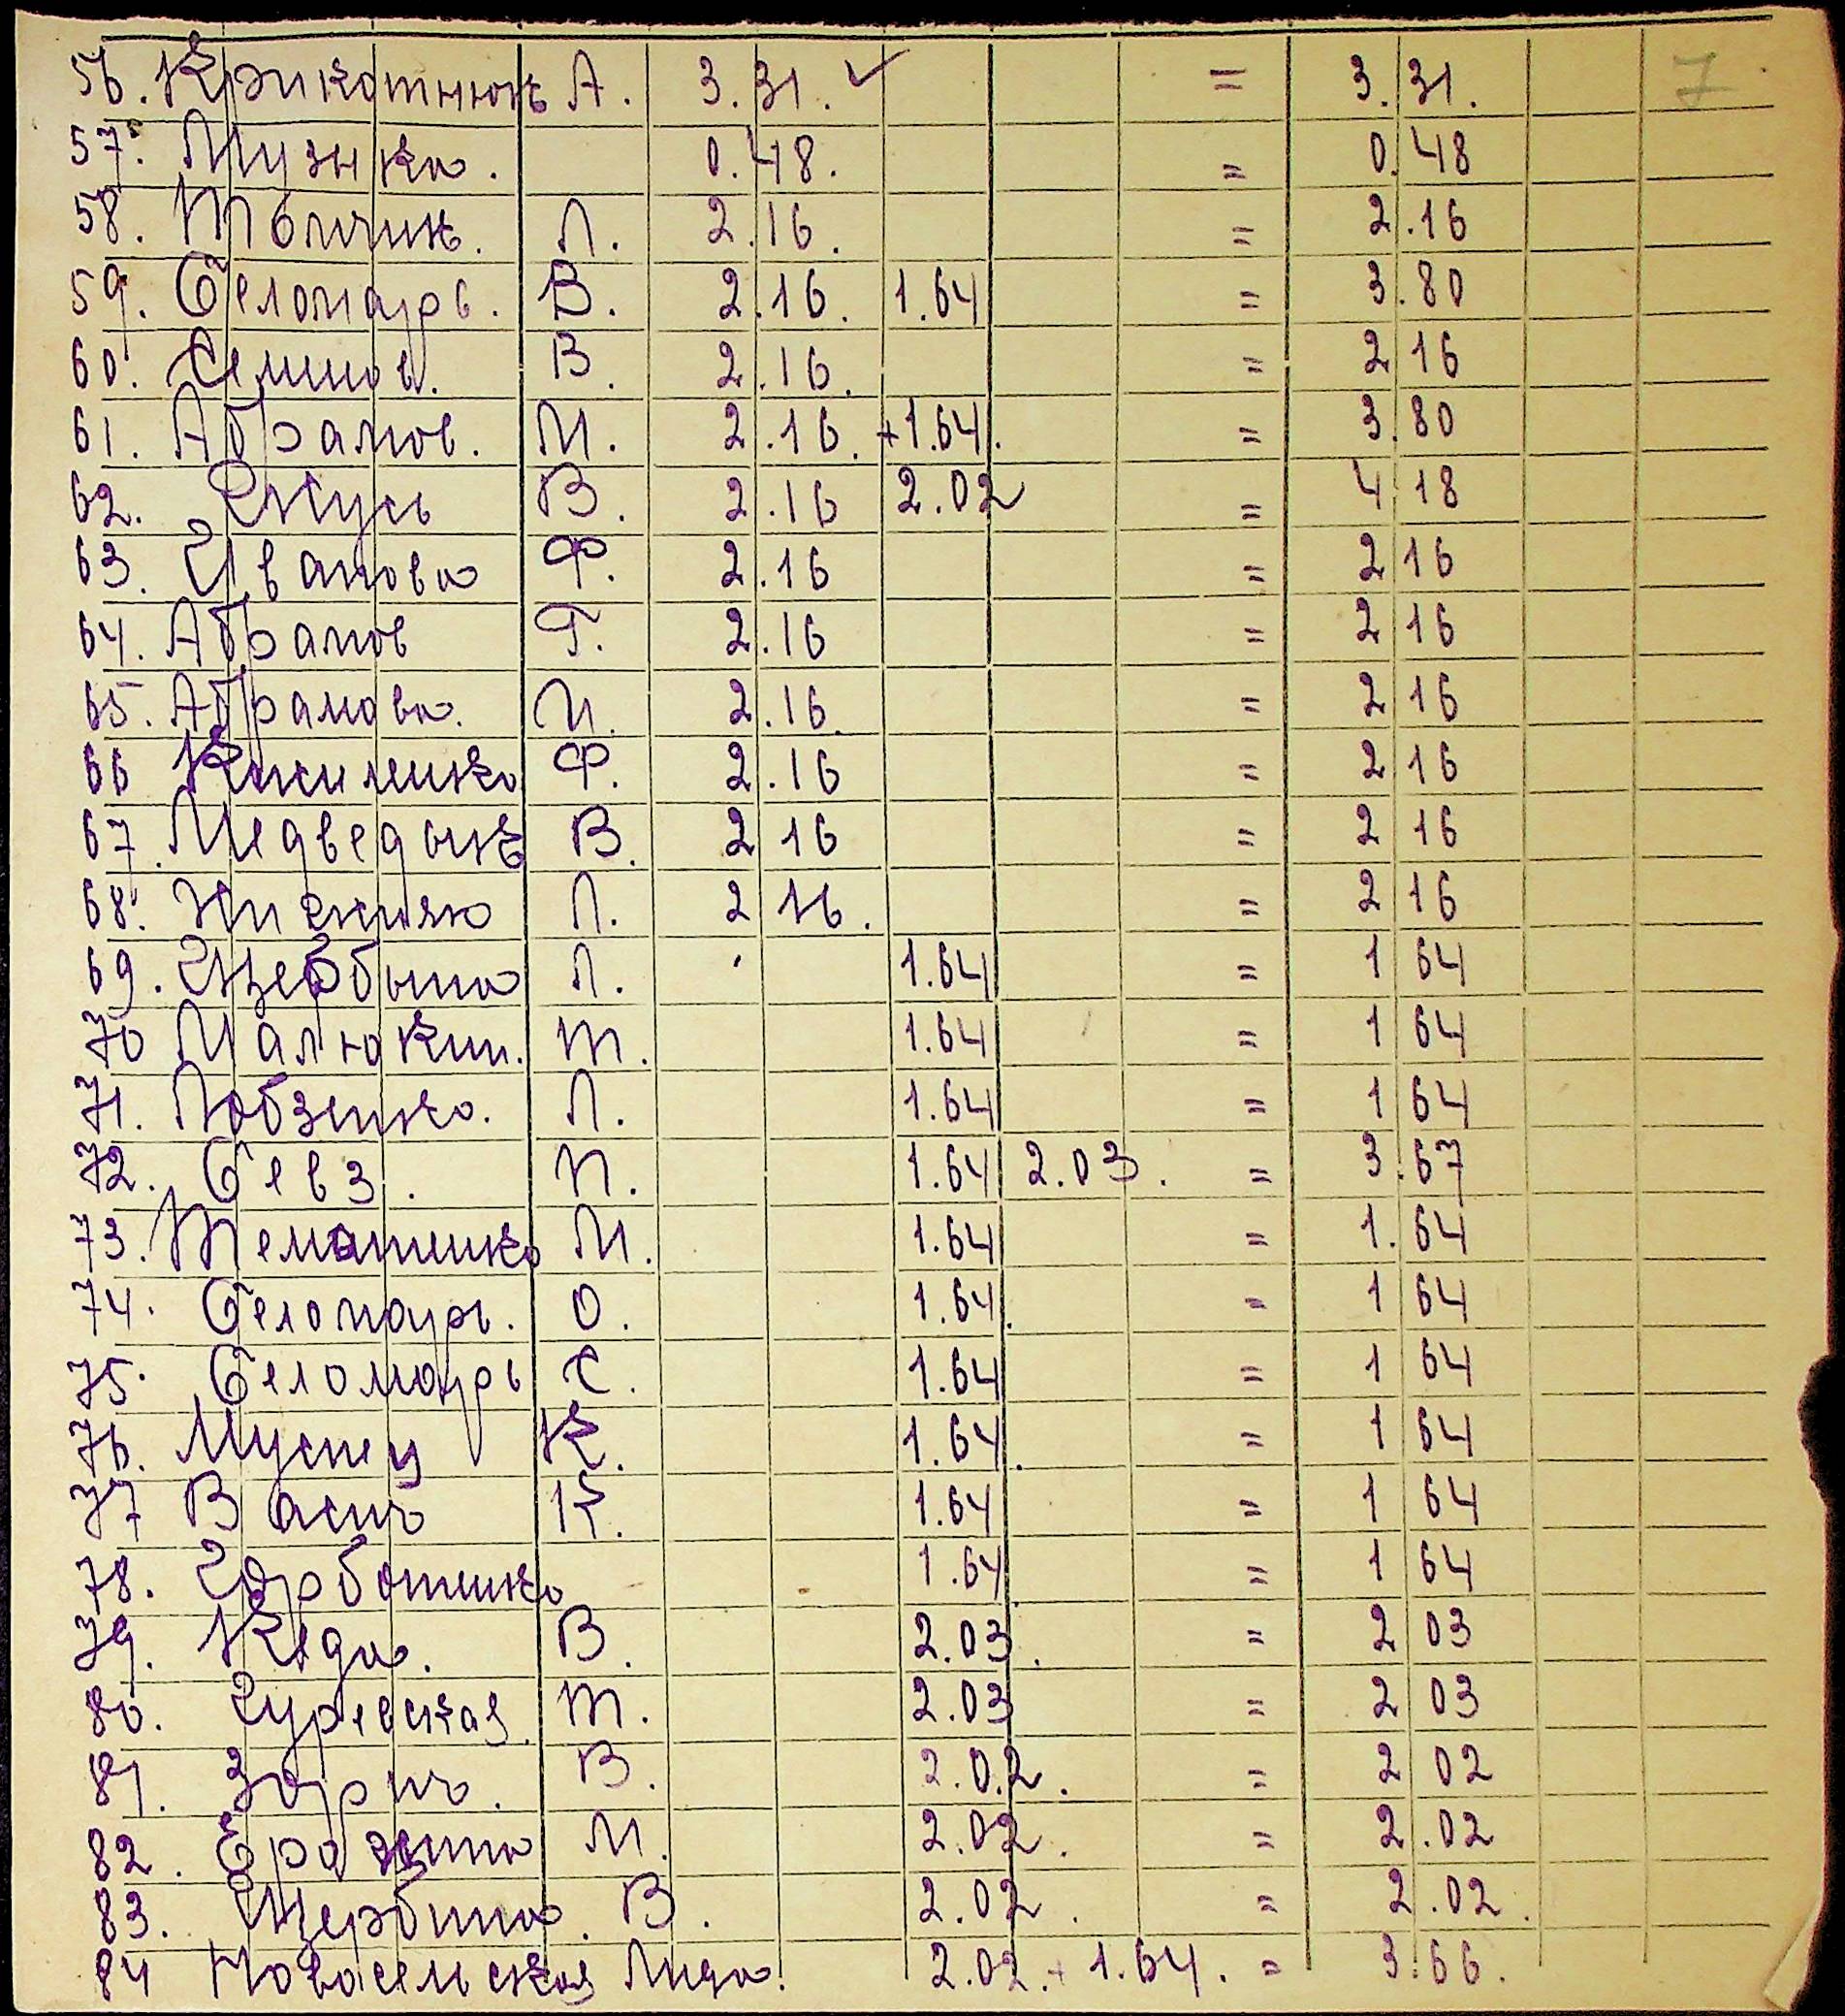 7
56. Крикотнюк А. 3.31. ✓ = 3.31.
57. Музыка. 0.48. = 0.48
58. Товмчик. Л. 2.16. = 2.16
59. Беломарь. В. 2.16. 1.64 = 3.80
60. Семинов. В. 2.16. = 2 16
61. Абрамов. М. 2.16. +1.64. = 3.80
62. В. 2.16 2.02 = 4.18
63. Иванова Ф. 2.16 = 2 16
64. Абрамов Г. 2.16 = 2 16
65. Абрамова. И. 2.16. = 2 16
66 Ф. 2.16 = 2 16
67. Медведык В. 2 16 = 2 16
68. Л. 2 16. = 2 16
69. Щербына Л. 1.64 = 1 64
70 Малюкин. Т. 1.64 = 1 64
71. Лобзенко. Л. 1.64 = 1 64
72. Бевз. П. 1.64 2.03. = 3.67
73. М. 1.64 = 1.64
74. Беломарь. О. 1.64. = 1 64
75. Беломарь С. 1.64 = 1 64
76. К. 1.64. = 1 64
77 К. 1.64 = 1 64
78. Горботенко 1.64. = 1 64
79. В. 2.03. = 2 03
80. Гуревская. Т. 2.03 = 2 03
81. В. 2.02. = 2 02
82. М. 2.02. = 2.02
83. Щербина. В. 2.02. = 2.02.
84 Новосельская Лида. 2.02. + 1.64. = 3.66.